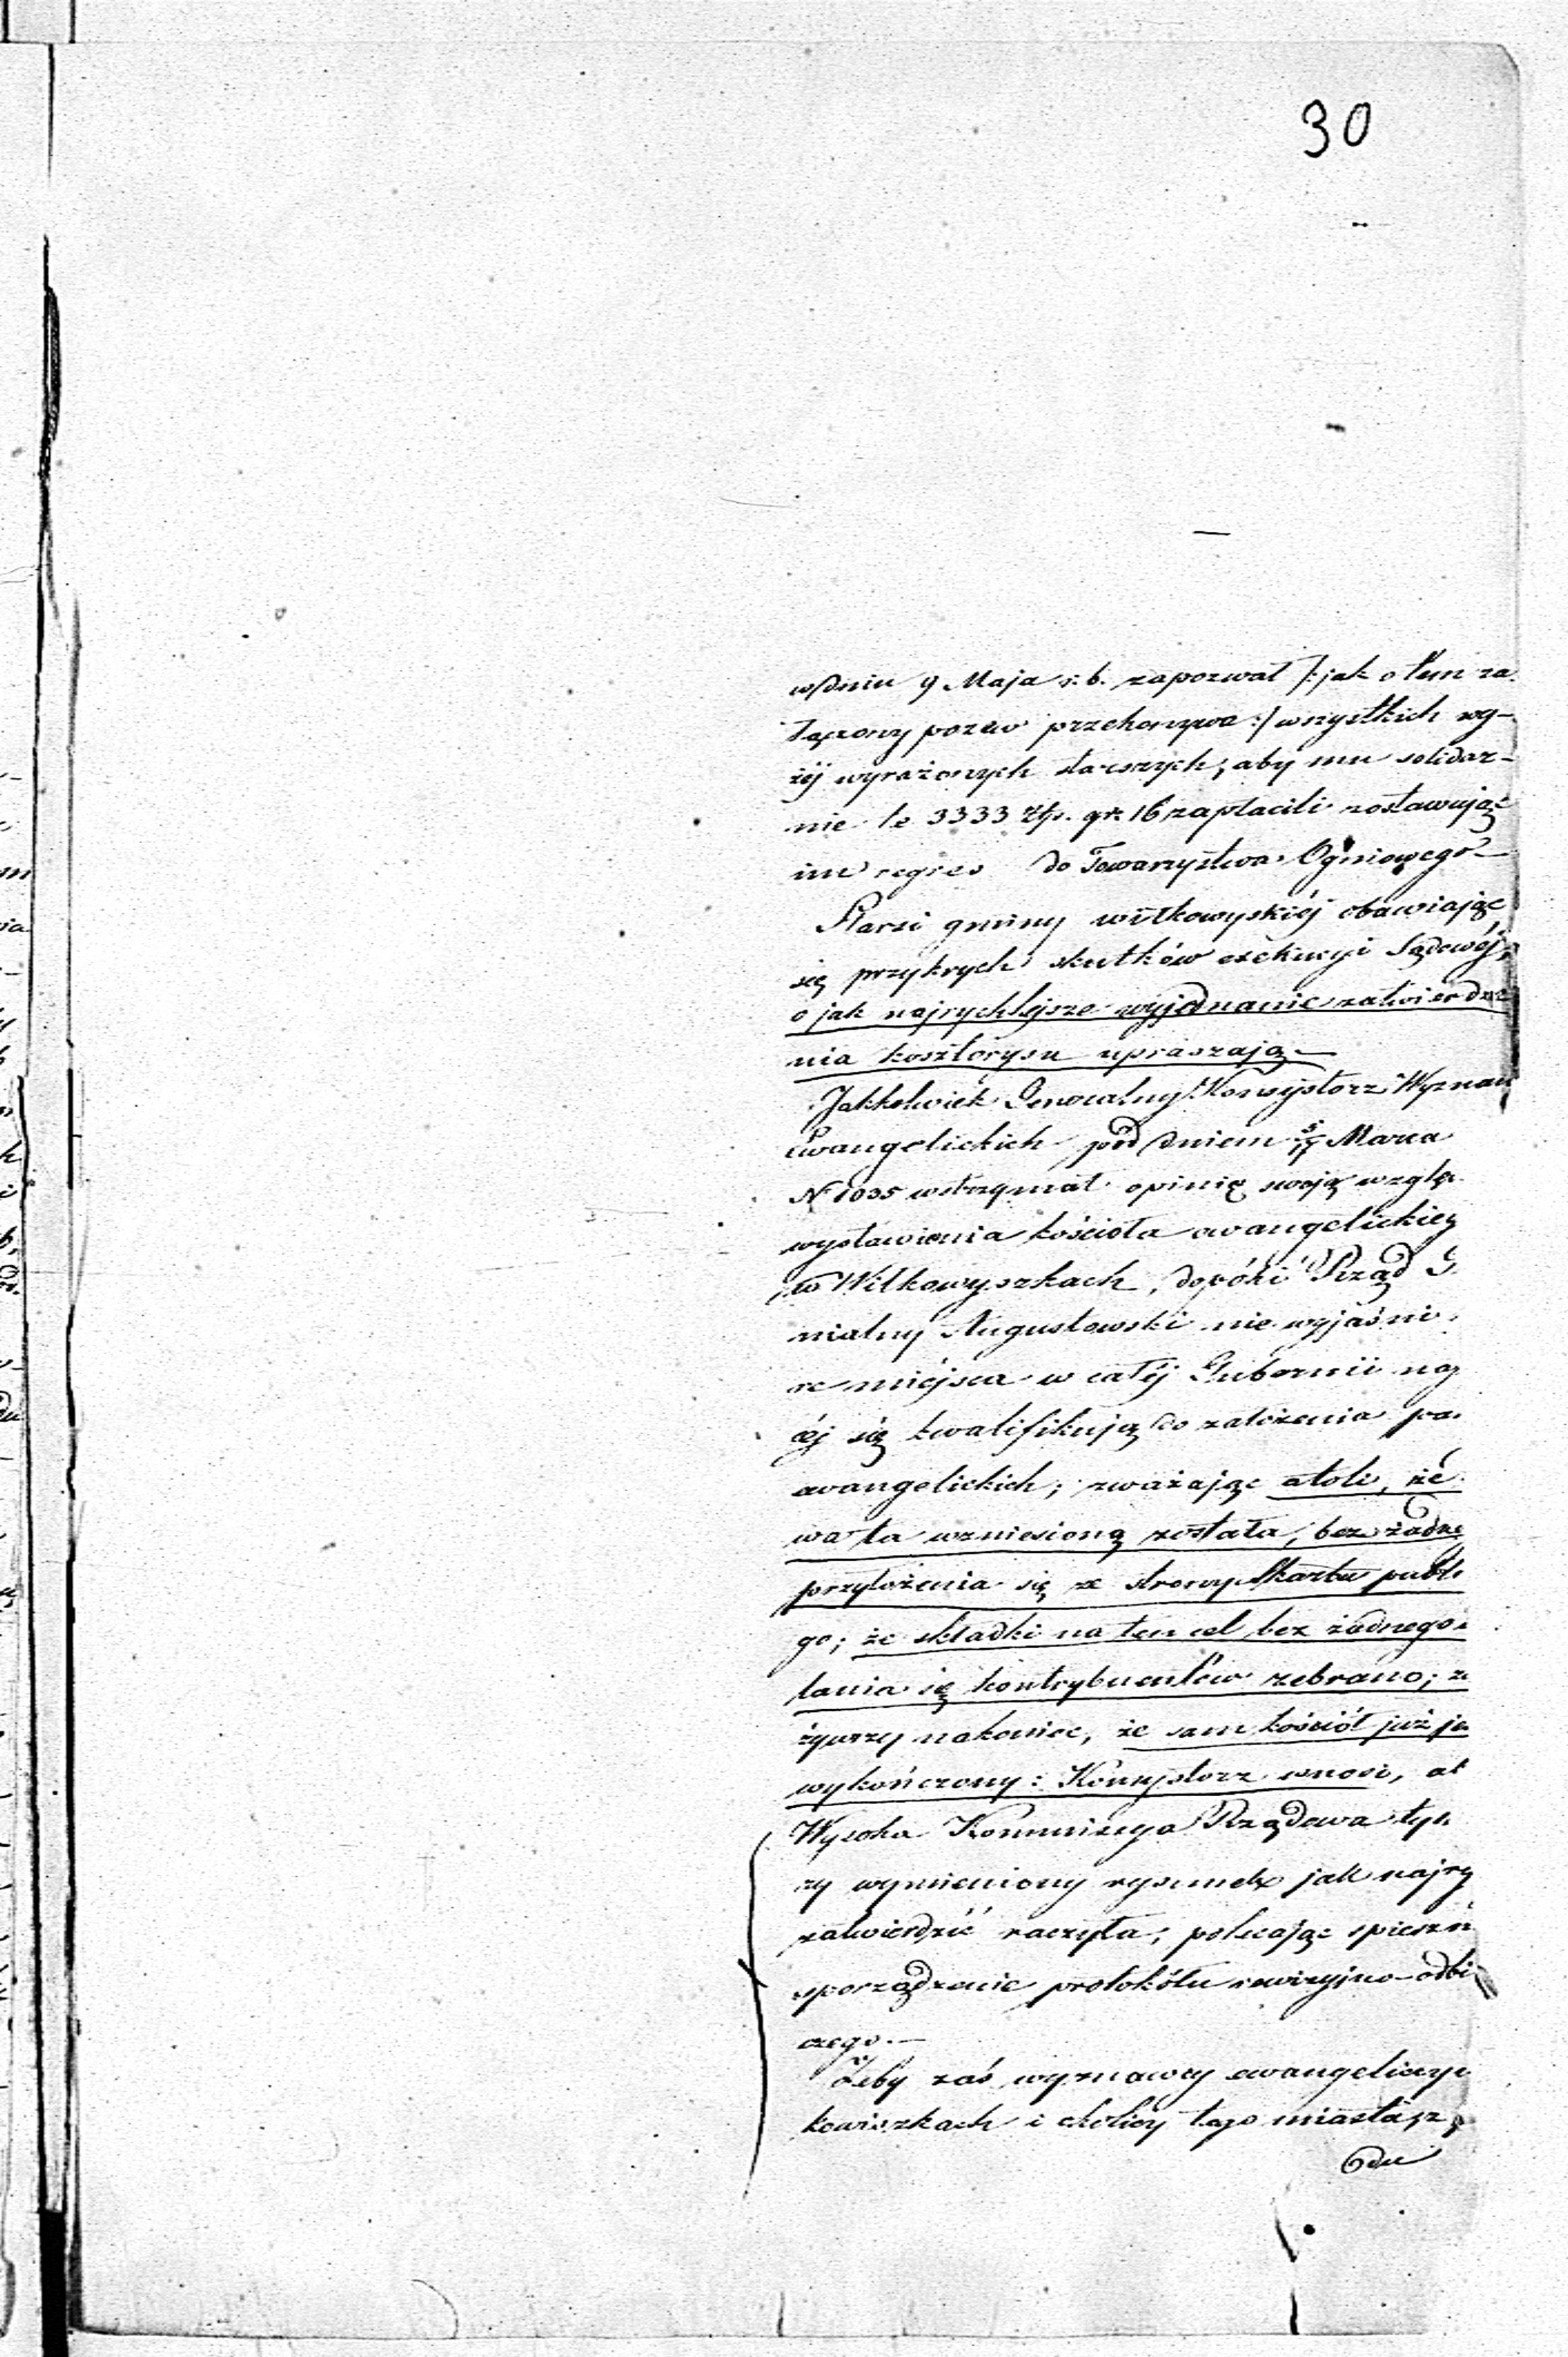 30
w dniu 9 Maja r.b. zapozwał /: jak o tem za-
łączony pozew przekonywa :/ wszystkich wy-
żéj wyrażonych starszych, aby mu solidar-
nie te 3333 złp. gr. 16 zapłacili zostawując
im regres do Towarzystwa Ogniowego —
Starsi gminy wiłkowyskiéj obawiając
się przykrych skutków exekucyi Sądowéj,
o jak najrychlejsze wyjednanie zatwierdze
nia kosztorysu upraszają —
Jakkolwiek Generalny Konsystorz Wyznań
Ewangelickich pod dniem 5/17 Marca
N 1035 wstrzymał opinię swoją wzglę
wystawienia kościoła ewangelickieg
w Wiłkowyszkach, dopóki Rząd G
nialny Augustowski nie wyjaśni
re miéjsca w całéj Gubernii naj
éj się kwalifikują do założenia pa
ewangelickich; zważając atoli, że
wa ta wzniesioną została, bez żadne
przyłożenia się ze strony Skarbu publi
go; że składki na ten cel bez żadnego
lania się kontrybuentów zebrano; z
żywszy nakoniec, że sam kościół już je
wykończony: Konsystorz wnosi, at
Wysoka Kommissya Rządowa tyl
zy wymieniony rysunek jak najry
zatwierdzić raczyła, polecając spieszn
sporządzenie protokółu rewizyjno-odbi
czego. —
Żeby zaś wyznawcy ewangeliccy
kowiszkach i okolicy tego miasta, z
du